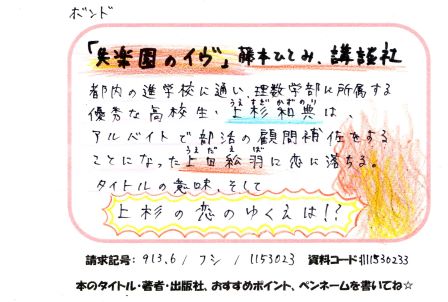 ボンド
「失楽園のイヴ」藤本ひとみ、講談社
都内の進学校に通い、理数学部に所属する
優秀な高校生・上杉和典は、
うえすぎかずのり
アルバイトで部活の顧問補佐をする
ことになった上田絵羽に恋に落ちる。
うえだえば
タイトルの意味、そして
上杉の恋のゆくえは!?
請求記号: 913.6/ フシ / 1153023 資料コード:111530233
本のタイトル・著者・出版社、おすすめポイント、ペンネームを書いてね☆